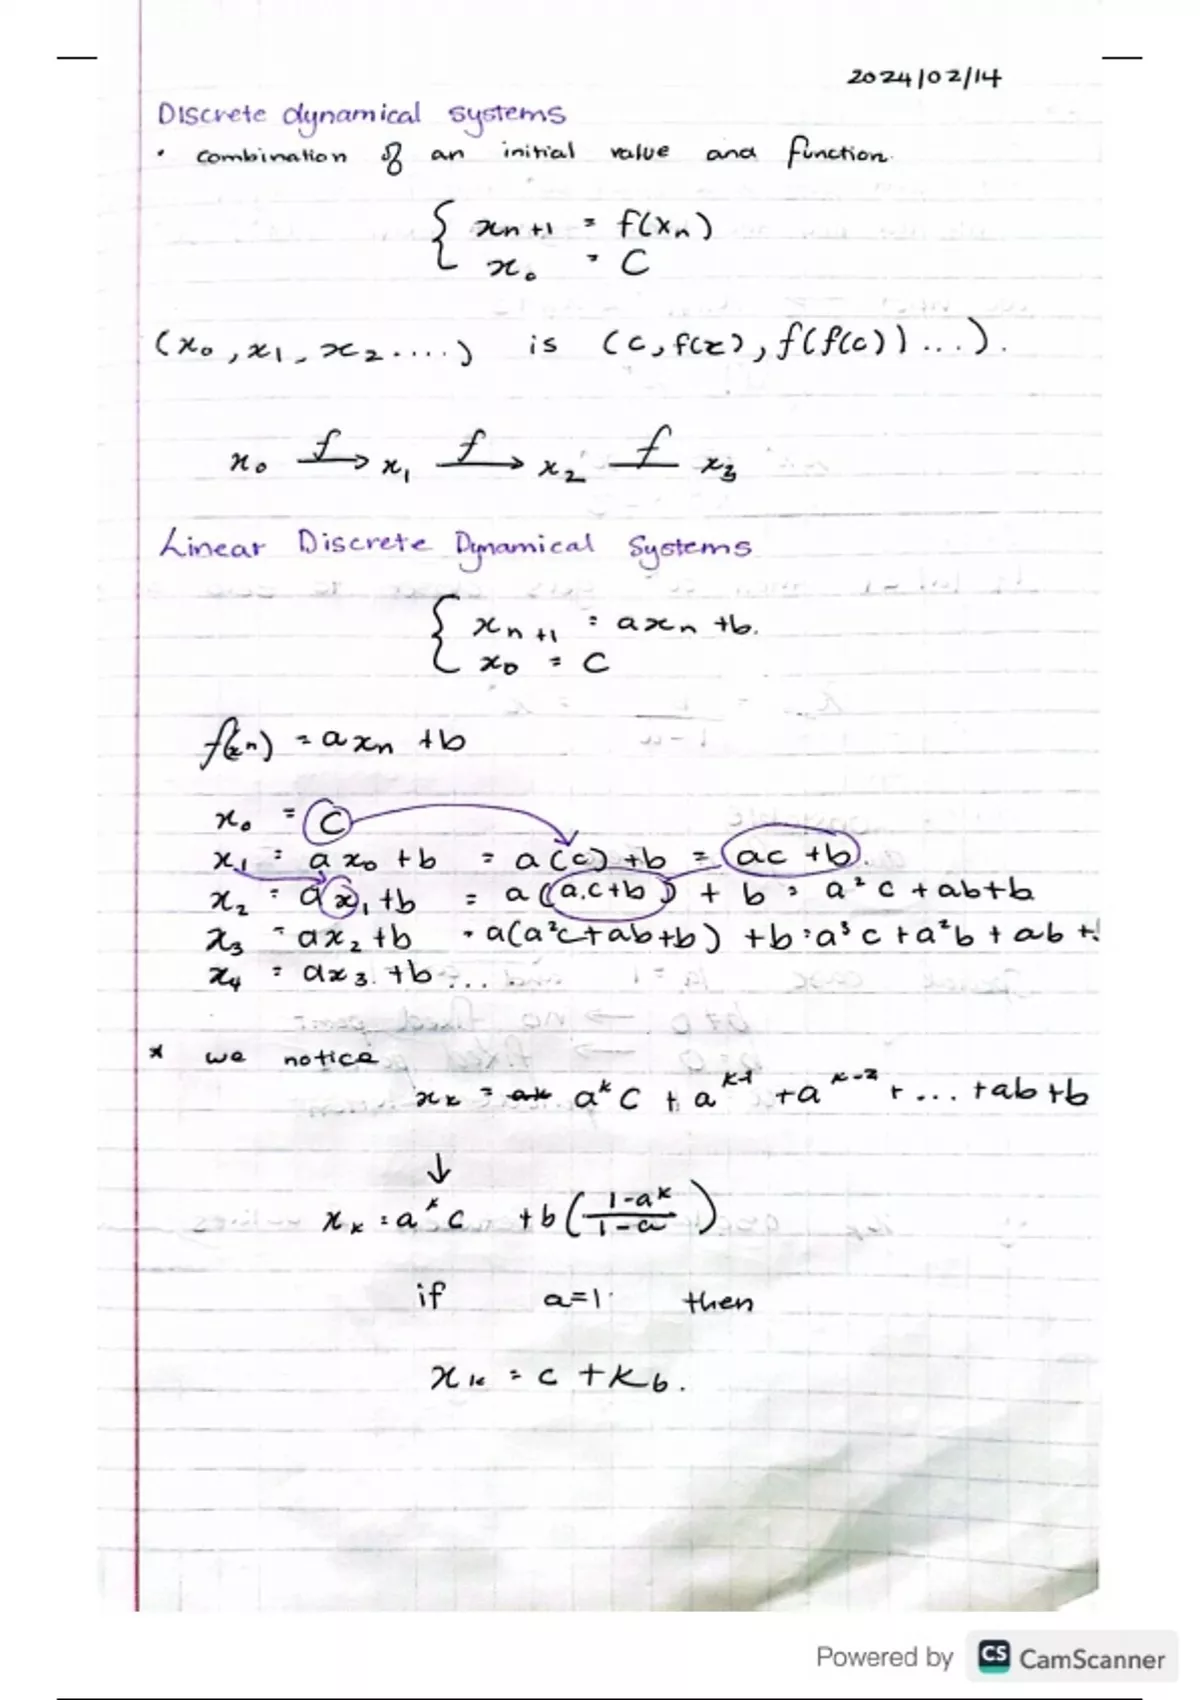 2024/02/14
Discrete dynamical systems
• combination of an initial value and function.
{ xn+1 = f(xn)
x0 = C
(x0, x1, x2....) is (c, f(x), f(f(c))...).
x0 —f→ x1 —f→ x2 —f— x3
Linear Discrete Dynamical Systems
{ xn+1 = axn +b.
x0 = C
f(xn) = axn +b
x0 = C
x1 = ax0 +b = a(c)+b = ac+b.
x2 = ax1+b = a(a.c+b) + b = a²c + ab+b
x3 = ax2+b = a(a²c+ab+b) +b = a³c + a²b + ab +
x4 = ax3.+b...
* we notice
xk = a^k C + a^k-1 + a^k-2 + ... + ab + b
↓
xk = a^k c + b(1-a^k / 1-a)
if a=1 then
xk = c + kb.
Powered by CS CamScanner